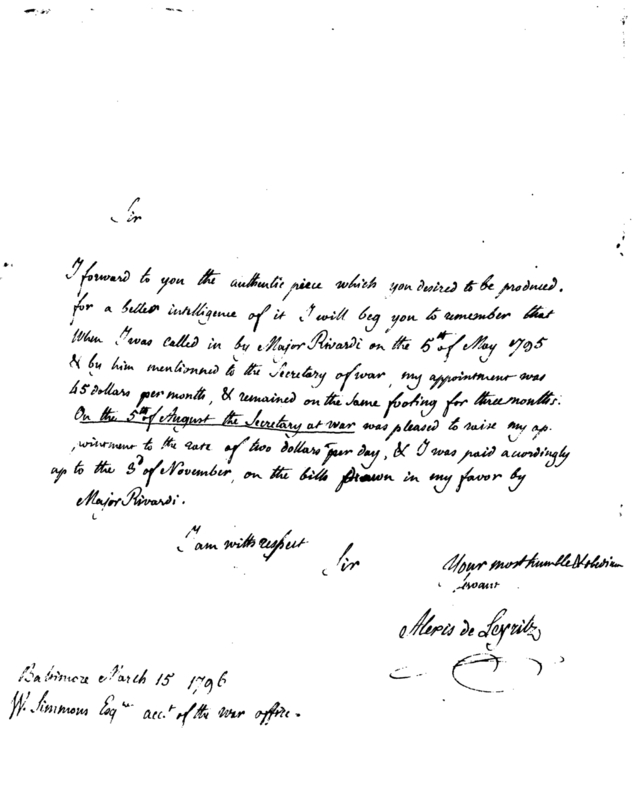 Sir
I forward to you the authentic piece which you desired to be produced.
for a better intelligence of it I will beg you to remember that
When I was called in by Major Rivardi on the 5th of May 1795
& by him mentionned to the Secretary of war, my appointment was
45 dollars per months, & remained on the same footing for three months.
On the 5th of August the Secretary at war was pleased to raise my ap-
pointment to the rate of two dollars per day, & I was paid accordingly
up to the 3d of November, on the bills Drawn in my favor by
Major Rivardi.
I am with respect
Sir
Your most humble & obedient
servant
Alexis de Leyritz
Baltimore March 15 1796
W. Simmons Esqre acct. of the war office.